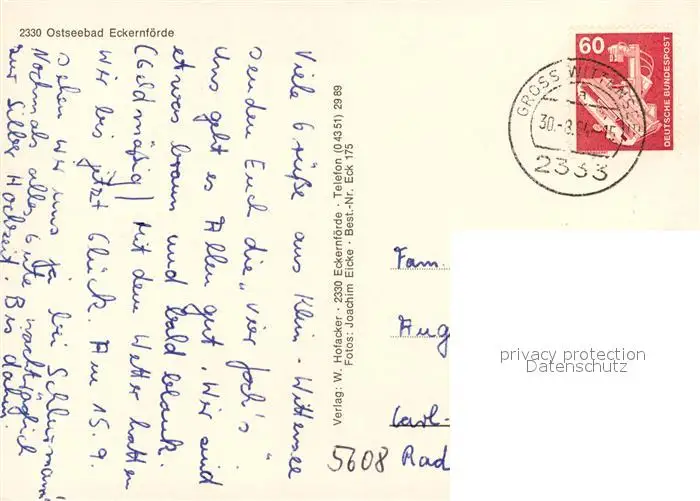 2330 Ostseebad Eckernförde
Viele Grüße aus Klein-Wittensee
senden Euch die „vier Joch's"
Uns geht es Allen gut. Wir sind
etwas braun und bald blank.
(Geldmäßig) Mit dem Wetter hatten
wir bis jetzt Glück. Am 15.9.
sehen wir uns ja bei
Nochmals alles Gute nachträglich
zur Silber Hochzeit. Bis dahin.
Verlag: W. Hofacker · 2330 Eckernförde · Telefon (0 43 51) 29 89
Fotos: Joachim Eicke · Best.-Nr. Eck 175
60
DEUTSCHE BUNDESPOST
GROSS WITTENSEE
30.-8.84
2333
Fam.
Aug
Carl-
5608 Rad
privacy protection
Datenschutz